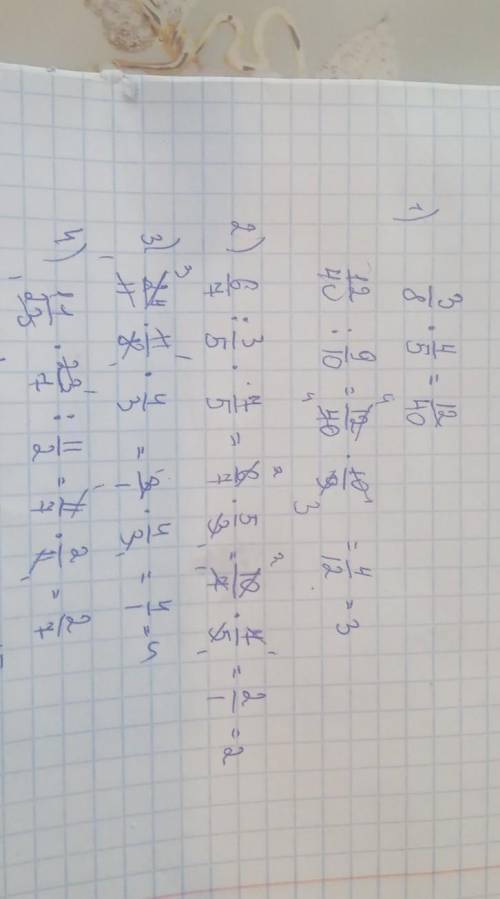 1) 3/8 · 4/5 = 12/40
12/40 : 9/10 = 12/40 · 10/9 = 4/12 = 3
2) 6/7 : 3/5 · 7/5 = 6/7 · 5/3 = 10/7 · 7/5 = 2/1 = 2
3) 24/11 · 11/8 · 4/3 = 3/1 · 4/3 = 4/1 = 4
4) 11/23 · 23/7 : 11/2 = 11/7 · 2/11 = 2/7